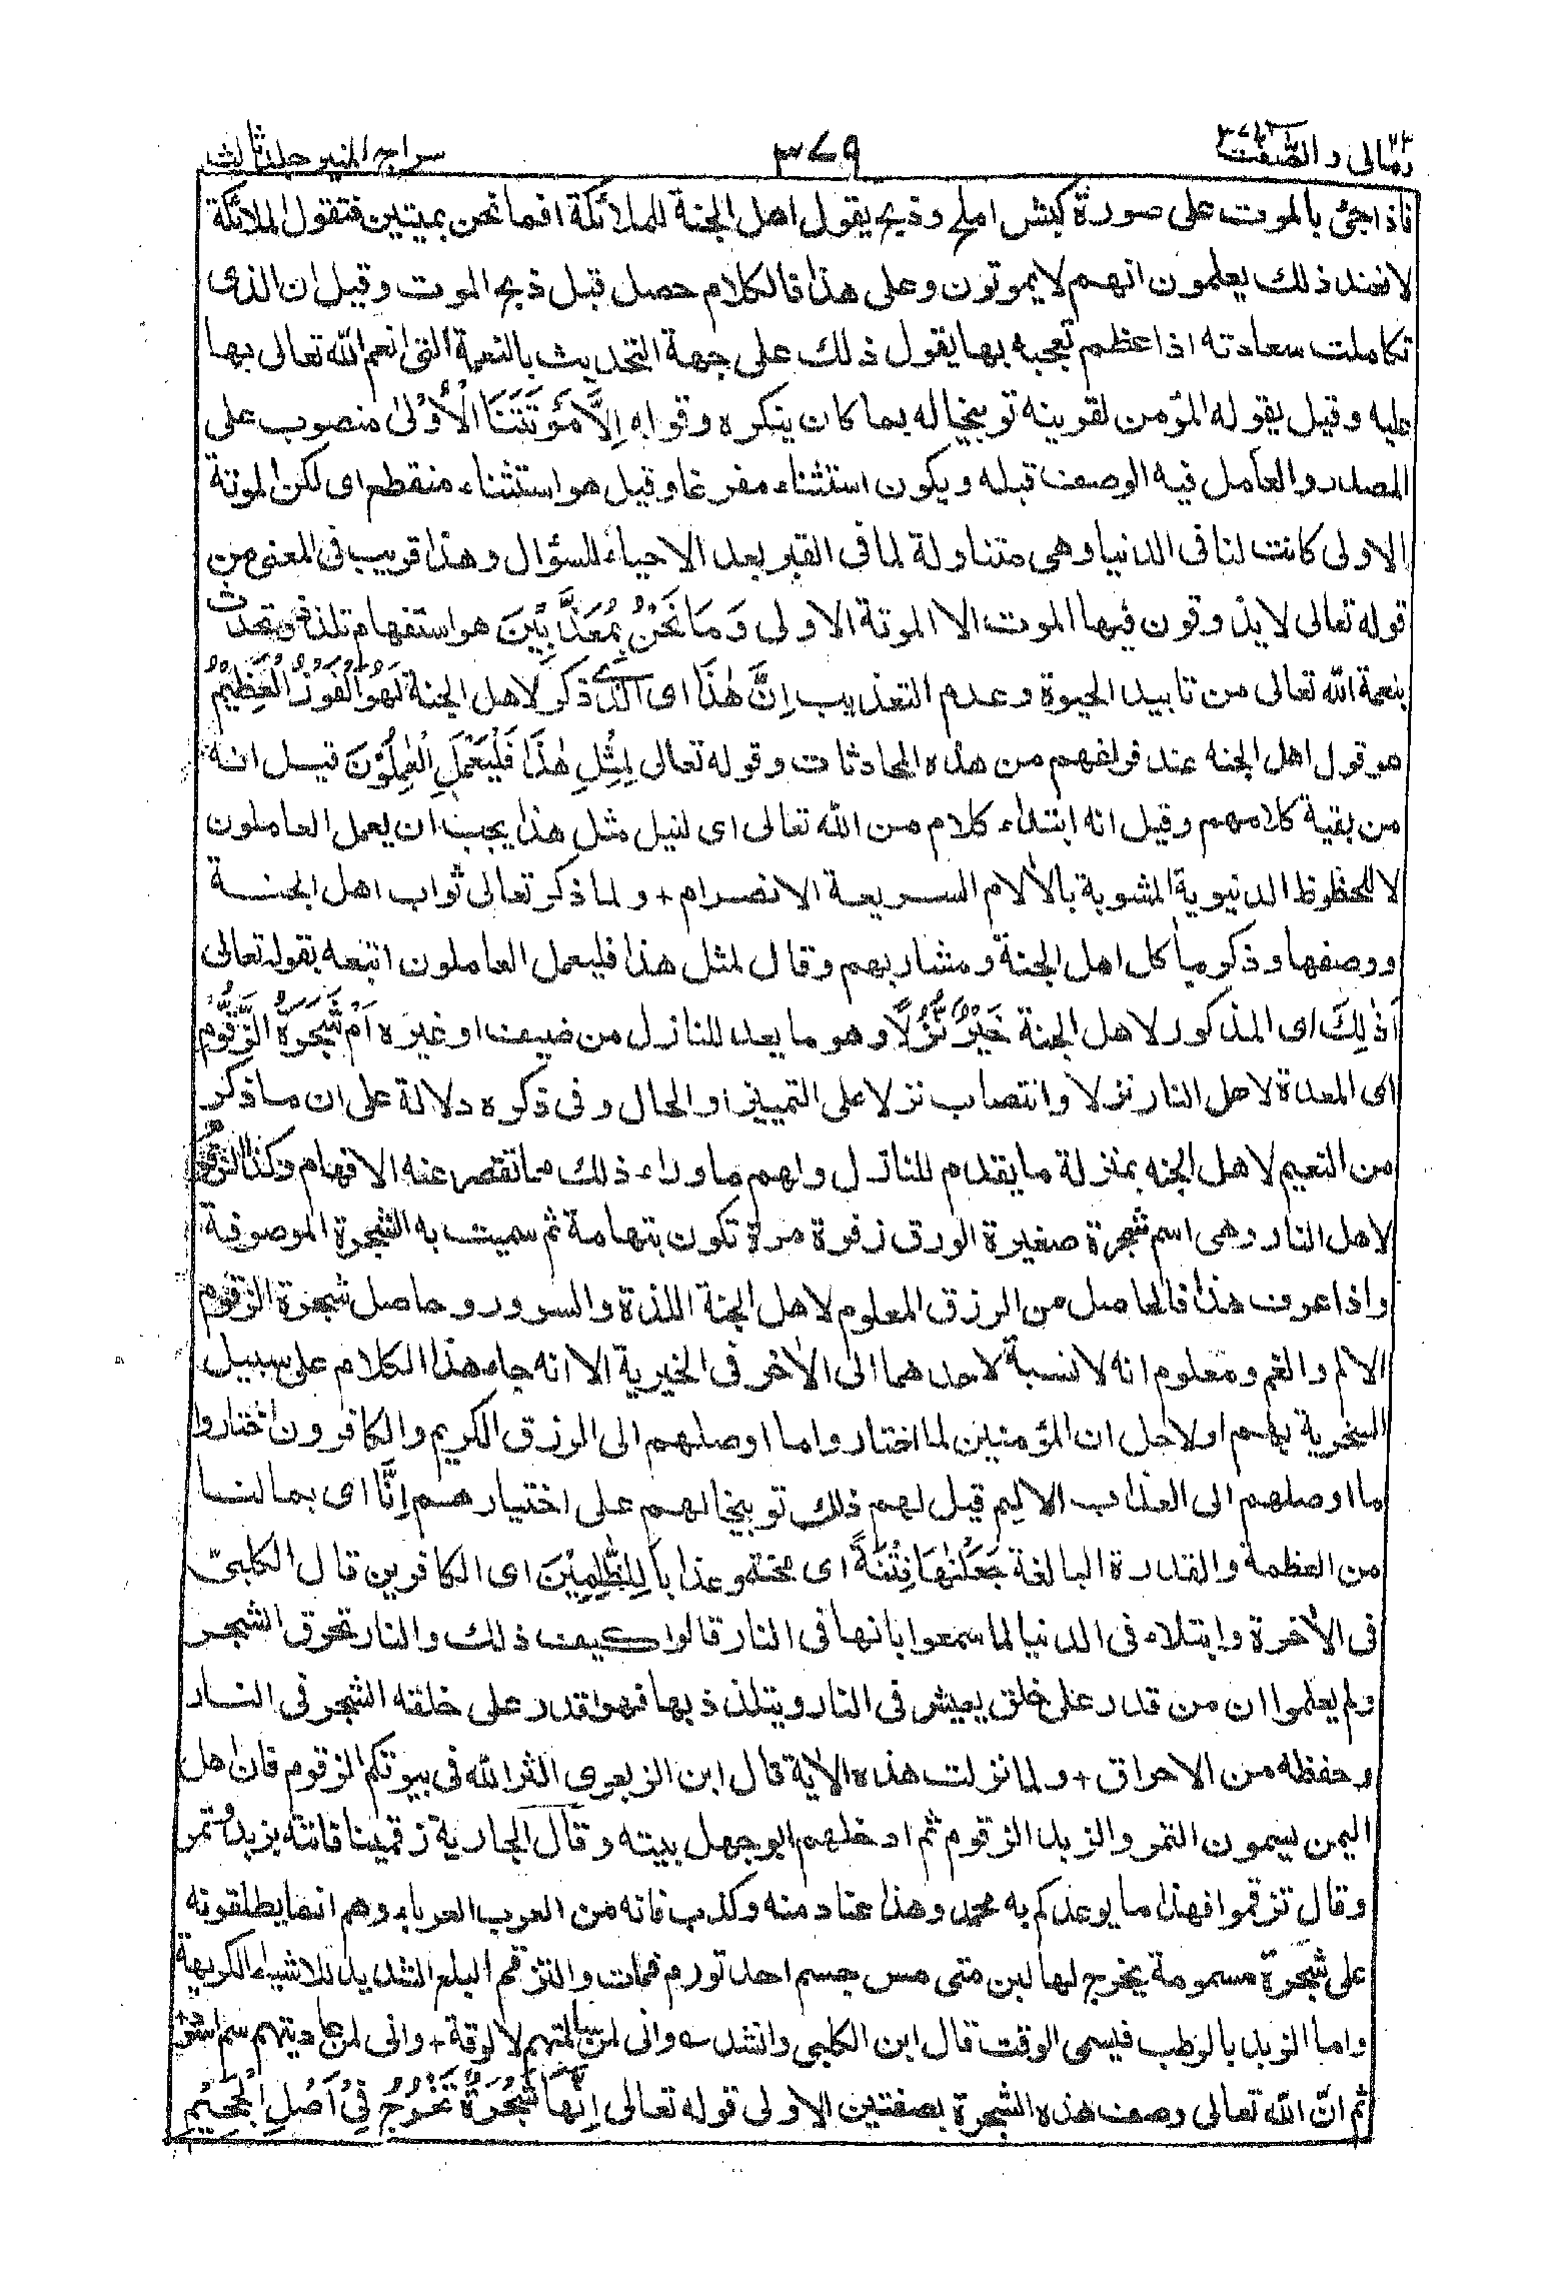 ومالى ٢٣ والصّٰفّٰت ٣٧ ٣٧٩ سراج المنير جلد ثالث
فاذا جئ بالموت على صورة كبش املح وذبح يقول اهل الجنة للملائكة افما نحن بميتين فتقول الملائكة
لا فعند ذلك يعلمون انهم لا يموتون وعلى هذا فالكلام حصل قبل ذبح الموت وقيل ان الذى
تكاملت سعادته اذا عظم تعجبه بها يقول ذلك على جهة التحديث بالنعمة التى انعم الله تعالى بها
عليه وقيل يقوله المؤمن لقرينه توبيخا له بما كان ينكره وقوله اِلَّا مَوْتَتَنَا الْاُوْلٰى منصوب على
المصدر والعامل فيه الوصف قبله ويكون استثناء مفرغا وقيل هو استثناء منقطع اى لكن الموتة
الاولى كانت لنا فى الدنيا وهى متناولة لما فى القبر بعد الاحياء للسؤال وهذا قريب فى المعنى من
قوله تعالى لا يذوقون فيها الموت الا الموتة الاولى وَمَا نَحْنُ بِمُعَذَّبِيْنَ هو استفهام تلذذ وتحدث
بنعمة الله تعالى من تابيد الحيوة وعدم التعذيب اِنَّ هٰذَا اى الذى ذكر لاهل الجنة لَهُوَ الْفَوْزُ الْعَظِيْمُ
هو قول اهل الجنه عند فراغهم من هذه المحادثات وقوله تعالى لِمِثْلِ هٰذَا فَلْيَعْمَلِ الْعٰمِلُوْنَ قيل انه
من بقية كلامهم وقيل انه ابتداء كلام من الله تعالى اى لنيل مثل هذا يجب ان يعمل العاملون
لا للحظوظ الدنيوية المشوبة بالآلام السريعة الانصرام + ولما ذكر تعالى ثواب اهل الجنة
ووصفها وذكر مآكل اهل الجنة ومشاربهم وقال لمثل هذا فليعمل العاملون اتبعه بقوله تعالى
اَذٰلِكَ اى المذكور لاهل الجنة خَيْرٌ نُّزُلًا وهو ما يعد للنازل من ضيف او غيره اَمْ شَجَرَةُ الزَّقُّوْمِ
اى المعدة لاهل النار نزلا وانتصاب نزلا على التمييز او الحال وفى ذكره دلالة على ان ما ذكر
من النعيم لاهل الجنه بمنزلة ما يقدم للنازل ولهم ما وراء ذلك ما تقصر عنه الافهام وكذا الزقوم
لاهل النار وهى اسم شجرة صغيرة الورق زفرة مرة تكون بتهامة ثم سميت به الشجرة الموصوفة
واذا عرف هذا فالحاصل من الرزق المعلوم لاهل الجنة اللذة والسرور وحاصل شجرة الزقوم
الالم والغم ومعلوم انه لا نسبة لاحدهما الى الآخر فى الخيرية الا انه جاء هذا الكلام على سبيل
السخرية بهم او لاجل ان المؤمنين لما اختاروا ما اوصلهم الى الرزق الكريم والكافرون اختاروا
ما اوصلهم الى العذاب الاليم قيل لهم ذلك توبيخا لهم على اختيارهم اِنَّا اى بما لنا
من العظمة والقدرة البالغة جَعَلْنٰهَا فِتْنَةً اى محنة وعذابا لِلظّٰلِمِيْنَ اى الكافرين قال الكلبىّ
فى الآخرة وابتلاء فى الدنيا لما سمعوا بانها فى النار قالوا كيف ذلك والنار تحرق الشجر
ولم يعلموا ان من قدر على خلق يعيش فى النار ويتلذذ بها فهو اقدر على خلقه الشجر فى النار
وحفظه من الاحراق + ولما نزلت هذه الآية قال ابن الزبعرى اكثر الله فى بيوتكم الزقوم فان اهل
اليمن يسمون التمر والزبد الزقوم ثم ادخلهم ابو جهل بيته وقال الجارية زقمينا فاتته بزبد وتمر
وقال تزقموا فهذا ما يوعدكم به محمد وهذا عناد منه وكذب فانه من العرب العرباء وهم انما يطلقونه
على شجرة مسمومة يخرج لها لبن متى مس جسم احد تورم فمات والتزقم البلع الشديد للاشياء الكريهة
واما الزبد بالرطب فيسمى الوقت قال ابن الكلبى وانشد ؎ وانى لمن سالمتهم لالوقة + وانى لمن عاديتهم سم اسود
ثم انّ الله تعالى وصف هذه الشجرة بصفتين الاولى قوله تعالى اِنَّهَا شَجَرَةٌ تَخْرُجُ فِىْ اَصْلِ الْجَحِيْمِ